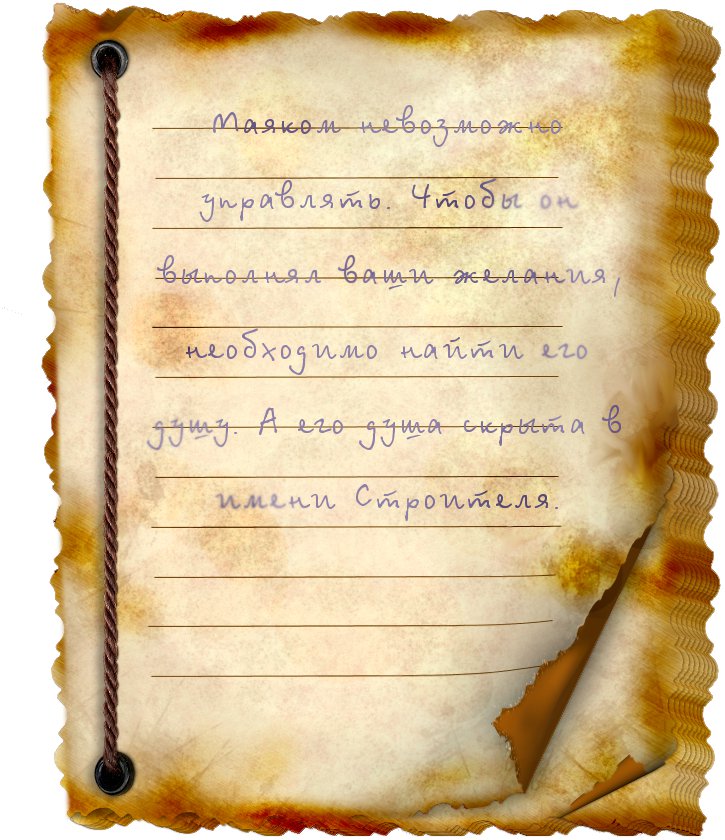 Маяком невозможно
управлять. Чтобы он
выполнял ваши желания,
необходимо найти его
душу. А его душа скрыта в
имени Строителя.